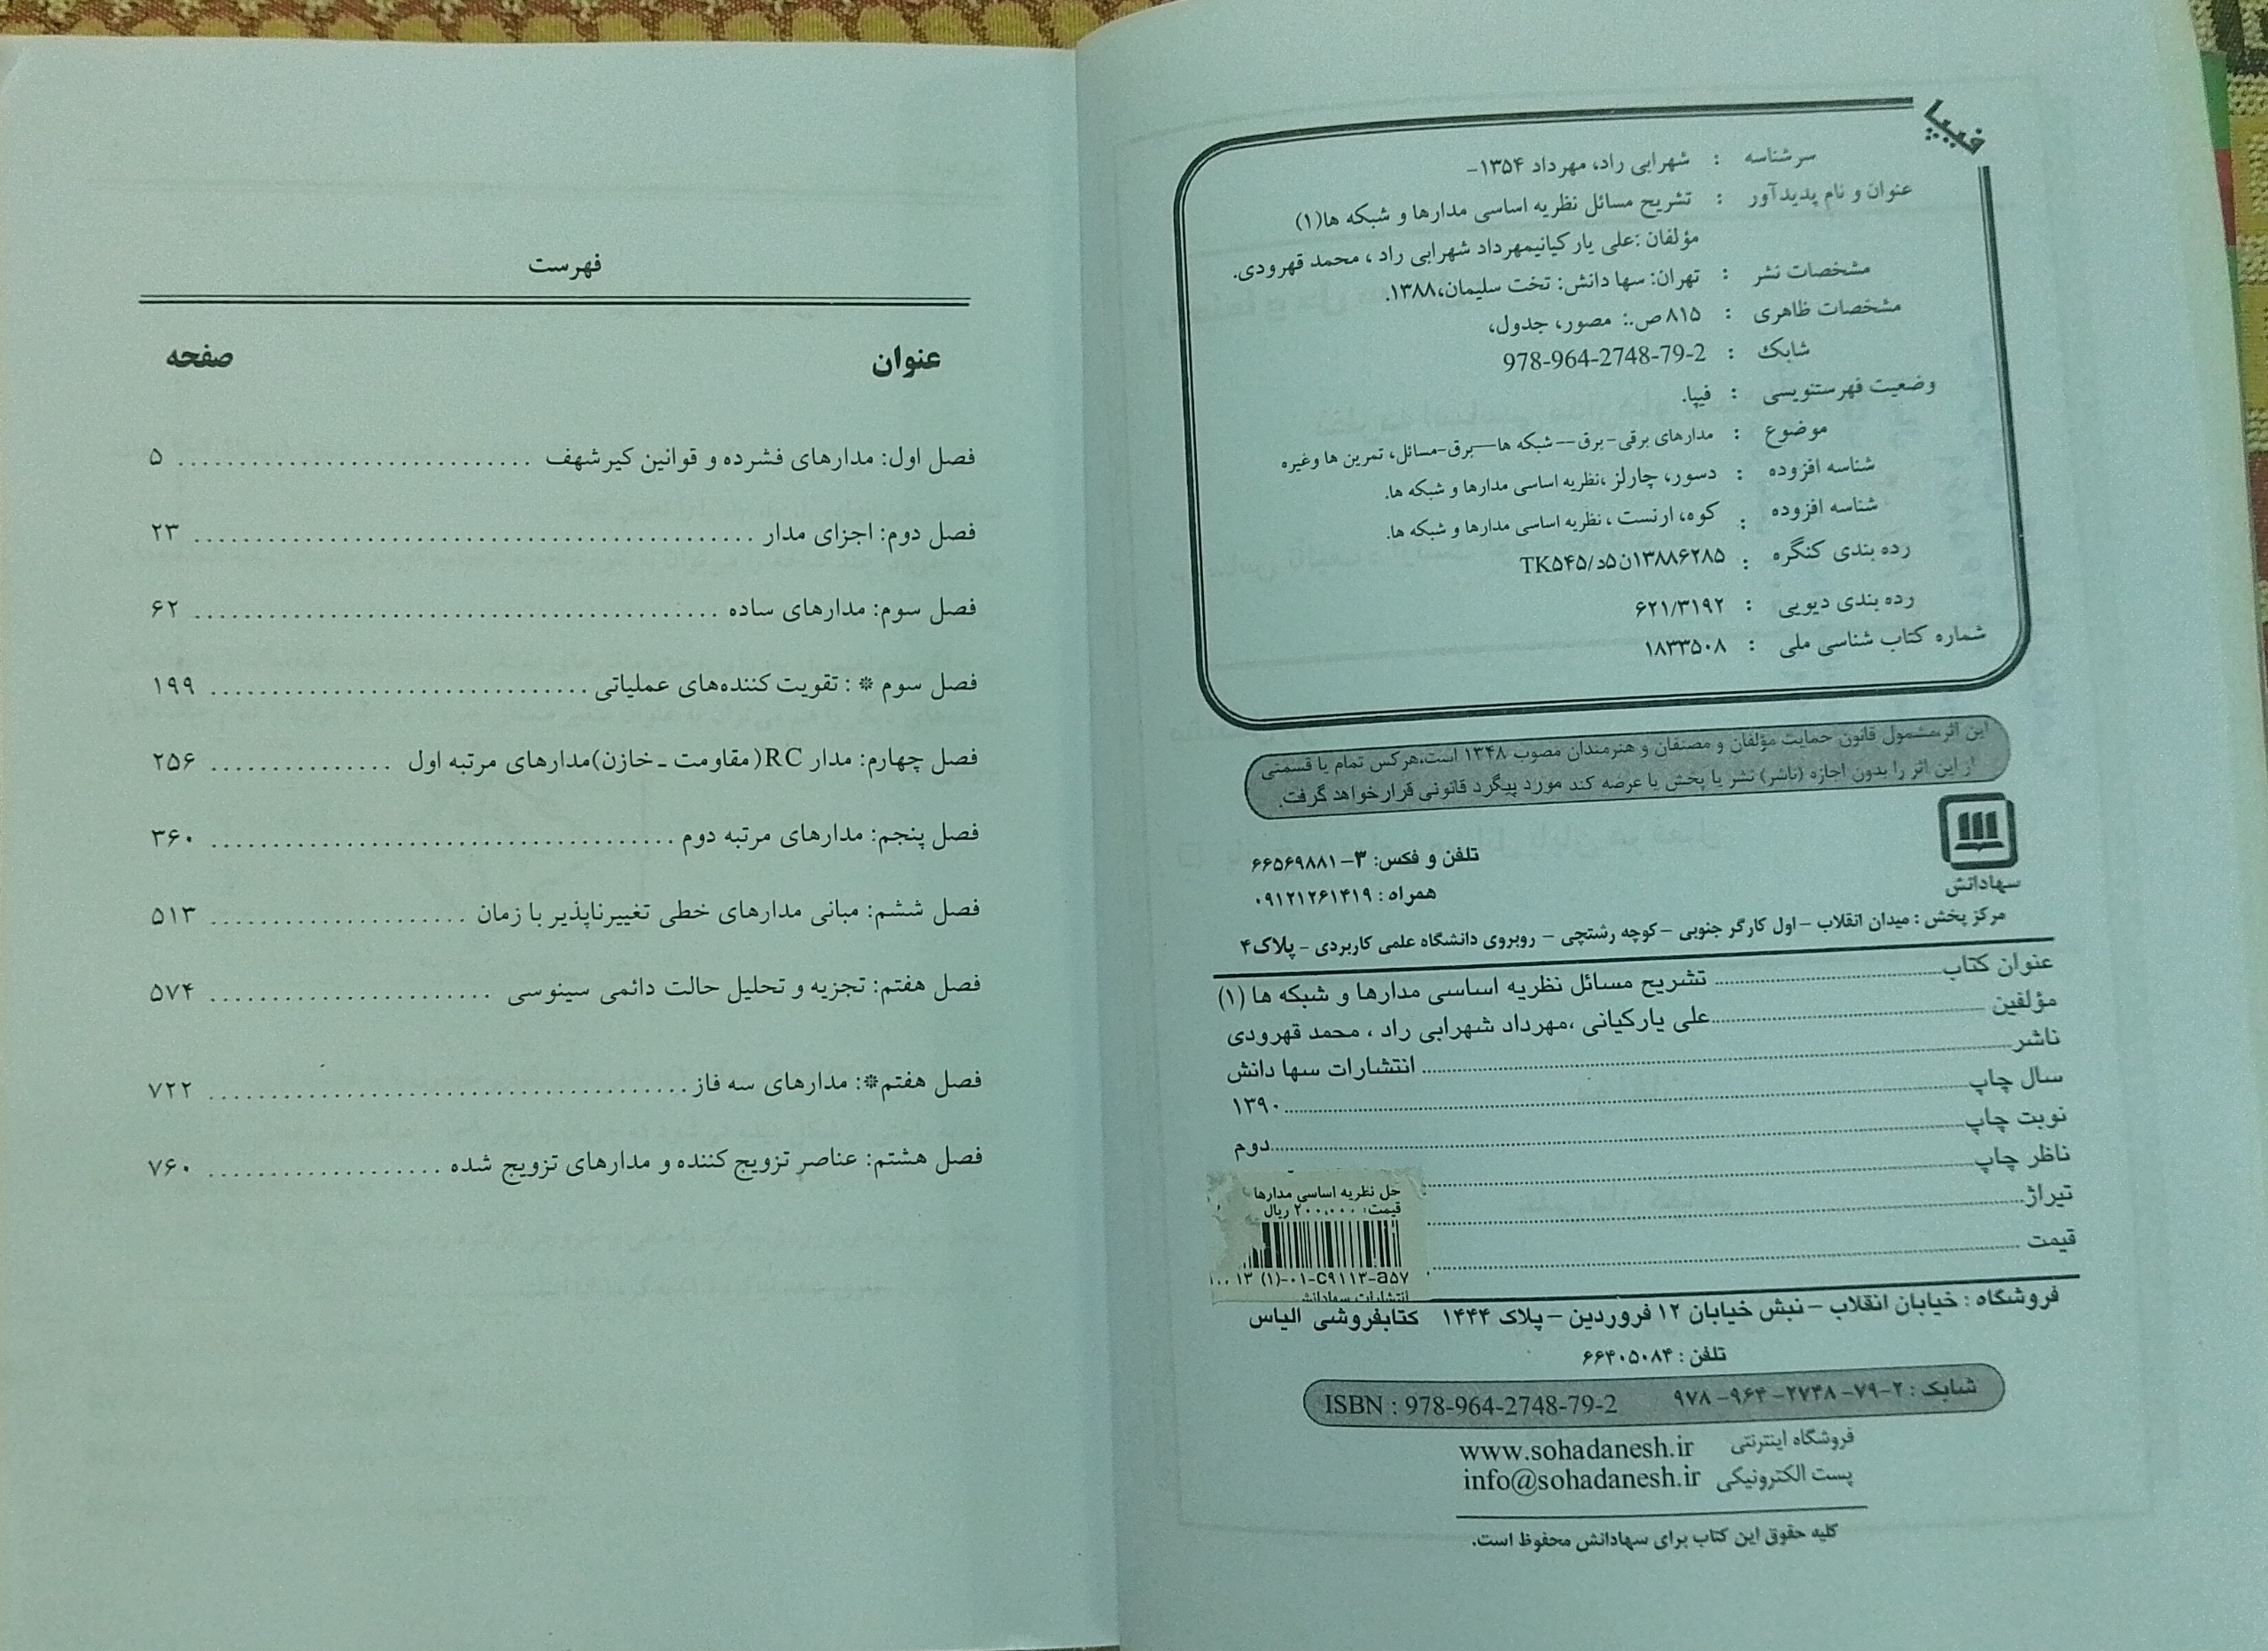 فیپا
سرشناسه : شهرابی راد، مهرداد ۱۳۵۴-
عنوان و نام پدیدآور : تشریح مسائل نظریه اساسی مدارها و شبکه ها(۱)
مؤلفان :علی یارکیانیمهرداد شهرابی راد ، محمد قهرودی.
مشخصات نشر : تهران: سها دانش: تخت سلیمان،۱۳۸۸.
مشخصات ظاهری : ۸۱۵ص.: مصور، جدول،
شابک : 978-964-2748-79-2
وضعیت فهرستنویسی : فیپا.
موضوع : مدارهای برقی-برق--شبکه ها--برق-مسائل، تمرین ها وغیره
شناسه افزوده : دسور، چارلز ،نظریه اساسی مدارها و شبکه ها.
شناسه افزوده : کوه، ارنست ، نظریه اساسی مدارها و شبکه ها.
رده بندی کنگره : ۱۳۸۸۶۲۸۵ن۵د/TK۵۴۵
رده بندی دیویی : ۶۲۱/۳۱۹۲
شماره کتاب شناسی ملی : ۱۸۳۳۵۰۸
این اثر،مشمول قانون حمایت مؤلفان و مصنفان و هنرمندان مصوب ۱۳۴۸ است،هرکس تمام یا قسمتی
از این اثر را بدون اجازه (ناشر) نشر یا پخش یا عرضه کند مورد پیگرد قانونی قرارخواهد گرفت.
سهادانش
تلفن و فکس: ۳-۶۶۵۶۹۸۸۱
همراه : ۰۹۱۲۱۲۶۱۴۱۹
مرکز پخش : میدان انقلاب - اول کارگر جنوبی - کوچه رشتچی - روبروی دانشگاه علمی کاربردی - پلاک۴
عنوان کتاب........تشریح مسائل نظریه اساسی مدارها و شبکه ها (۱)
مؤلفین........علی یارکیانی ،مهرداد شهرابی راد ، محمد قهرودی
ناشر........انتشارات سها دانش
سال چاپ........۱۳۹۰
نوبت چاپ........دوم
ناظر چاپ........
تیراژ........
قیمت........
حل نظریه اساسی مدارها
قیمت: ۲۰۰,۰۰۰ ریال
انتشارات سهادانش
فروشگاه : خیابان انقلاب - نبش خیابان ۱۲ فروردین - پلاک ۱۴۴۴ کتابفروشی الیاس
تلفن : ۶۶۴۰۵۰۸۴
شابک : ۲-۷۹-۲۷۴۸-۹۶۴-۹۷۸ ISBN : 978-964-2748-79-2
فروشگاه اینترنتی www.sohadanesh.ir
پست الکترونیکی info@sohadanesh.ir
کلیه حقوق این کتاب برای سهادانش محفوظ است.
فهرست
عنوان صفحه
فصل اول: مدارهای فشرده و قوانین کیرشهف ........ ۵
فصل دوم: اجزای مدار ........ ۲۳
فصل سوم: مدارهای ساده ........ ۶۲
فصل سوم * : تقویت کننده‌های عملیاتی ........ ۱۹۹
فصل چهارم: مدار RC(مقاومت ـ خازن)مدارهای مرتبه اول ........ ۲۵۶
فصل پنجم: مدارهای مرتبه دوم ........ ۳۶۰
فصل ششم: مبانی مدارهای خطی تغییرناپذیر با زمان ........ ۵۱۳
فصل هفتم: تجزیه و تحلیل حالت دائمی سینوسی ........ ۵۷۴
فصل هفتم*: مدارهای سه فاز ........ ۷۲۲
فصل هشتم: عناصر تزویج کننده و مدارهای تزویج شده ........ ۷۶۰